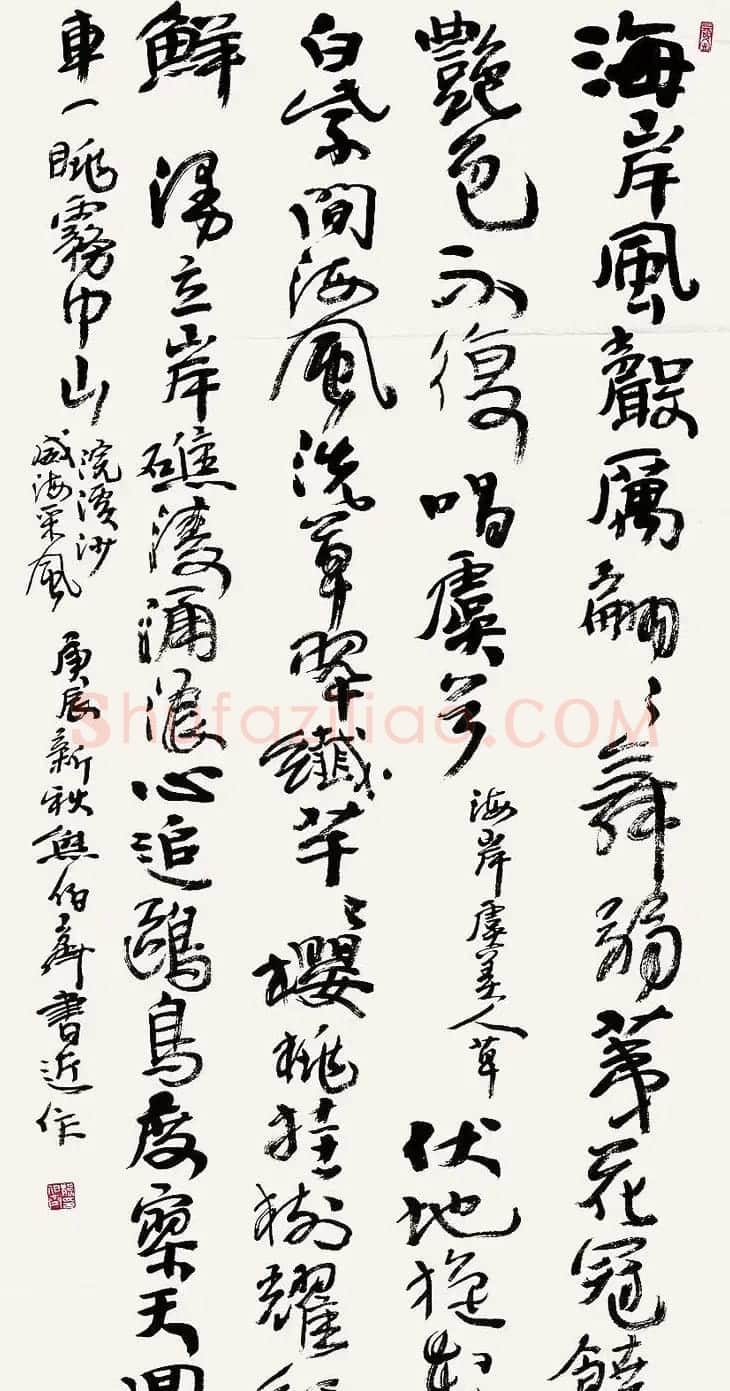 海岸風聲厲翩〻舞弱荑花冠饒
艷色不復唱虞兮 海岸虞美人草 伏地
白紫間海風洗草翠纖芊〻櫻桃挂樹耀
鮮 立岸礁凌涌浪心追鷗鳥度寥天回
車一眺霧中山 浣溪沙
威海采風
庚辰新秋熊伯齊書近作
Shufaziliao.COM